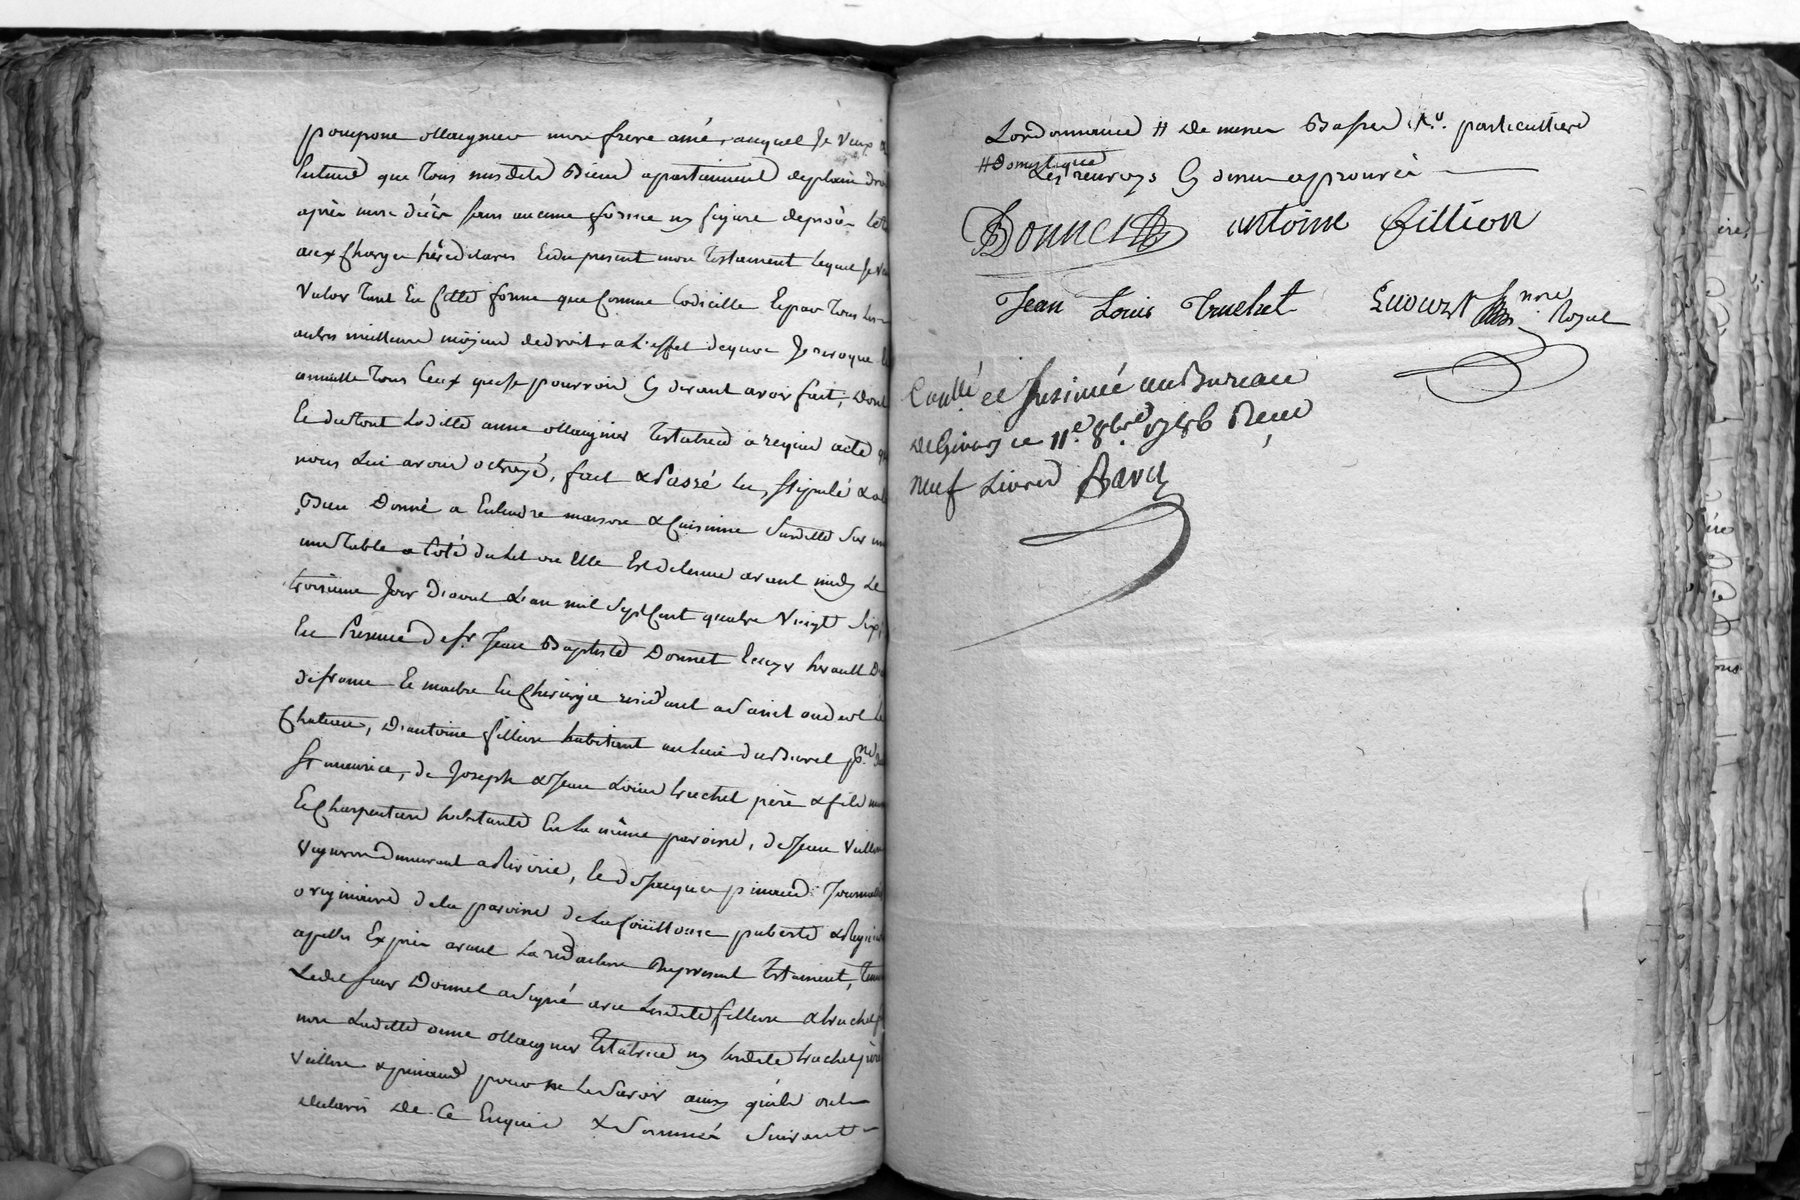 pompone ollaigner mon frere ainé, auquel Je veux
Entend que tous mesdits Biens apartiennent de plain droit
après mon décès sans aucune forme ny figure de procès
aux Charges héréditaires Et du present mon testament lequel Je veux
Valoir tant En Cette forme que Comme Codicille Et par tous les
autres meilleurs moyens de droit, a L'effet de quoy Je revoque Et
annulle tous Ceux que Je pourrois Cy devant avoir fait, Dont
Et du tout Laditte anne ollaignier testatrice a requis acte que
nous Lui avons octroyé, fait & Passé Lu, stipulé &
Bien Donné a Entendre maison & Cuisine susditte sur
une table a Coté du Lit ou Elle Est detenue avant midy Le
troisieme Jour D'aout L'an mil Sept Cent quatre Vingt Six,
En Presence de sr Jean Baptiste Donnet
de france Et maitre En Chirurgie residant a
Chateau, D'antoine fillion habitant au lieu du
St maurice, de Joseph & Jean Louis truchet père & fils
Et Charpentiers habitants En La même paroisse, de Jean
Vigneron demeurant a Riverie, Et de Jacques pinaud Journalier
originaire de la paroisse de La pubertes & Requis
apellés Exprès avant La redaction Du present testament,
Ledit sieur Donnet a Signé avec Lesdits fillion & truchet
non Laditte anne ollaignier testatrice ny Lesdits truchet père
& pinaud pour ne Le Savoir ainsy qu'ils ont
declaré De Ce Enquis & Sommés Suivant
Lordonnance # De meme particulliere
# Domestique
Les renvoys Cy dessus aprouvés
Donnet antoine fillion
Jean Louis Truchet nore Royal
Conllé et Insinué au Bureau
De Givors ce 11e 8bre 1786 Reçu
neuf Livres